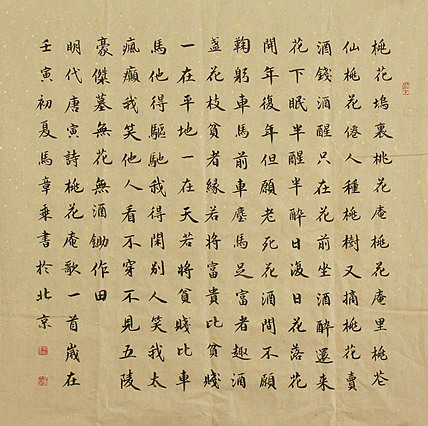 桃花塢裏桃花庵桃花庵里桃花
仙桃花僊人種桃樹又摘桃花賣
酒錢酒醒只在花前坐酒醉還來
花下眠半醒半醉日復日花落花
開年復年但願老死花酒間不願
鞠躬車馬前車塵馬足富者趣酒
盞花枝貧者緣若將富貴比貧賤
一在平地一在天若將貧賤比車
馬他得驅馳我得閑別人笑我太
瘋癲我笑他人看不穿不見五陵
豪傑墓無花無酒鋤作田
明代唐寅詩桃花庵歌一首歲在
壬寅初夏馬章乘書於北京